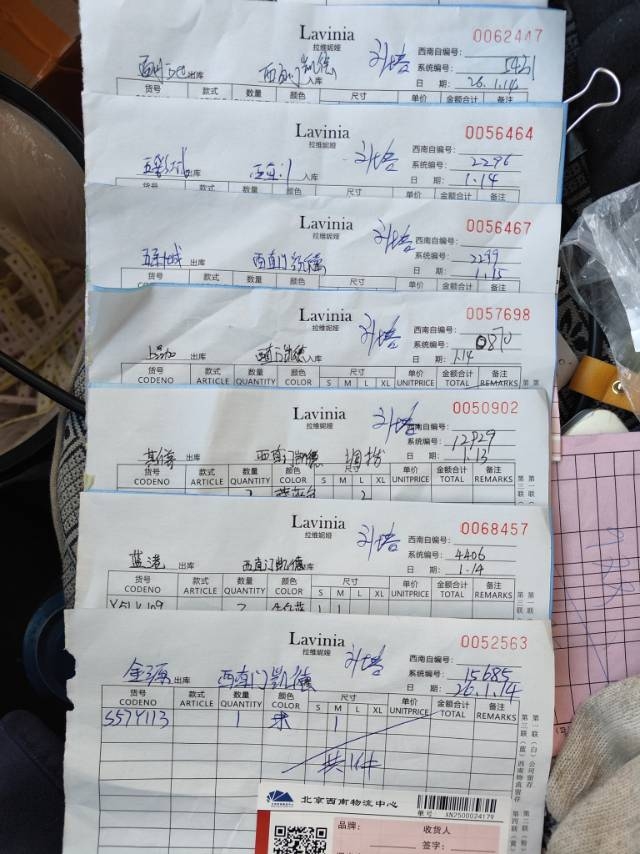 Lavinia 0062447
拉维妮娅 刘培 西南自编号：
出库 西直门凯德 入库 系统编号：5431
日 期：26.1.14
货号 款式 数量 颜色 尺寸 单价 金额合计 备注
Lavinia 0056464
拉维妮娅 刘培 西南自编号：
出库 西直门 入库 系统编号：2296
日 期：1.14
货号 款式 数量 颜色 尺寸 单价 金额合计 备注
Lavinia 0056467
拉维妮娅 刘培 西南自编号：
出库 西直门凯德 系统编号：2299
日 期：1.15
货号 款式 数量 颜色 尺寸 单价 金额合计 备注
Lavinia 0057698
拉维妮娅 刘培 西南自编号：
出库 西直门凯德 入库 系统编号：0870
日 期：1.14
货号 款式 数量 颜色 尺寸 单价 金额合计 备注
CODENO ARTICLE QUANTITY COLOR S M L XL UNITPRICE TOTAL REMARKS
Lavinia 0050902
拉维妮娅 刘培 西南自编号：
系统编号：12929
出库 西直门凯德 调拨 日 期：1.13
货号 款式 数量 颜色 尺寸 单价 金额合计 备注
CODENO ARTICLE QUANTITY COLOR S M L XL UNITPRICE TOTAL REMARKS
2
Lavinia 0068457
拉维妮娅 刘培 西南自编号：
系统编号：4406
蓝港 出库 西直门凯德 日 期：1.14
货号 款式 数量 颜色 尺寸 单价 金额合计 备注
CODENO ARTICLE QUANTITY COLOR S M L XL UNITPRICE TOTAL REMARKS
2 1 1
Lavinia 0052563
拉维妮娅 刘培 西南自编号：
系统编号：15685
金源 出库 西直门凯德 日 期：26.1.14
货号 款式 数量 颜色 尺寸 单价 金额合计 备注
CODENO ARTICLE QUANTITY COLOR S M L XL UNITPRICE TOTAL REMARKS
S57Y113 1 米 1
共1件
第一联（白）公司留存
北京西南物流中心
单号：XN2500024179
品牌： 收货人
签字：